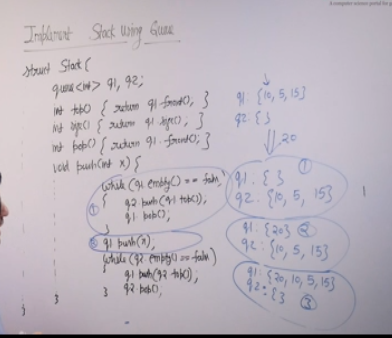 A computer science portal for g
Implement Stack Using Queue
struct Stack {
queue<int> q1, q2;
int top() { return q1.front(); }
int size() { return q1.size(); }
int pop() { return q1.front(); }
void push(int x) {
while (q1.empty() == false)
{
q2.push(q1.top());
q1.pop();
}
q1.push(x);
while (q2.empty() == false)
{
q1.push(q2.top());
q2.pop();
}
}
}
q1: {10, 5, 15}
q2: { }
20
①
q1: { }
q2: {10, 5, 15}
q1: {20} ②
q2: {10, 5, 15}
q1: {20, 10, 5, 15}
q2: { } ③